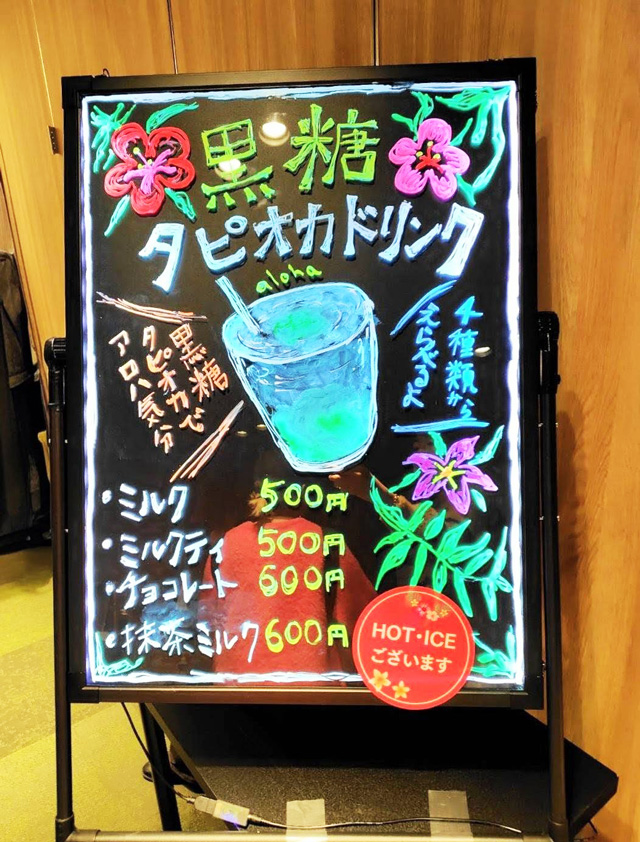 黒糖
タピオカドリンク
aloha
4種類から
えらべるよ
黒糖
タピオカで
アロハ気分
・ミルク 500円
・ミルクティ 500円
・チョコレート 600円
・抹茶ミルク 600円
HOT・ICE
ございます